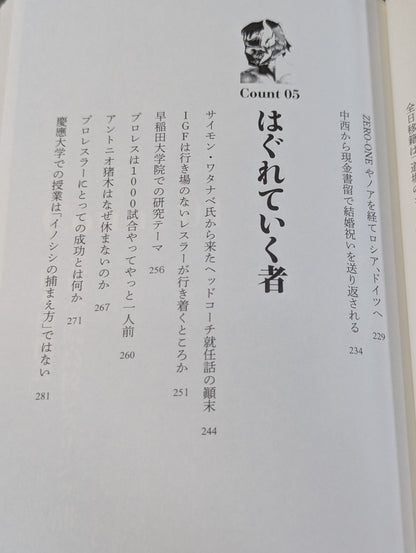 ZERO-ONEやノアを経てロシア、ドイツへ 229
中西から現金書留で結婚祝いを送り返される 234
Count 05
はぐれていく者
サイモン・ワタナベ氏から来たヘッドコーチ就任話の顚末 244
IGFは行き場のないレスラーが行き着くところか 251
早稲田大学院での研究テーマ 256
プロレスは1000試合やってやっと一人前 260
アントニオ猪木はなぜ休まないのか 267
プロレスラーにとっての成功とは何か 271
慶應大学での授業は「イノシシの捕まえ方」ではない 281